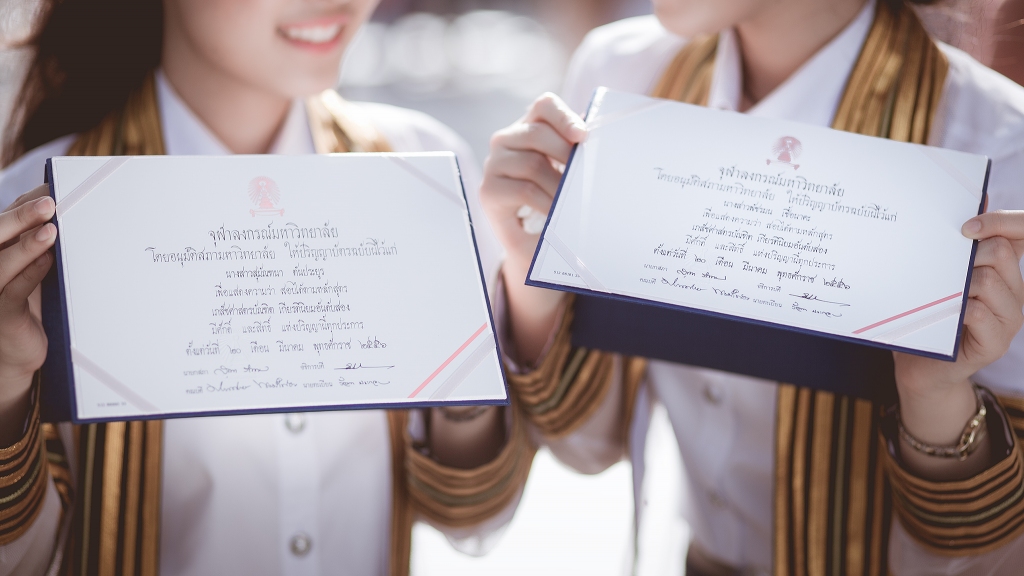 จุฬาลงกรณ์มหาวิทยาลัย
โดยอนุมัติสภามหาวิทยาลัย ให้ปริญญาบัตรฉบับนี้ไว้แก่
นางสาวสุมัณทนา ตันประยูร
เพื่อแสดงความว่า สอบได้ตามหลักสูตร
เภสัชศาสตรบัณฑิต เกียรตินิยมอันดับสอง
มีศักดิ์ และสิทธิ์ แห่งปริญญานี้ทุกประการ
ตั้งแต่วันที่ ๒๐ เดือน มีนาคม พุทธศักราช ๒๕๕๖
นายกสภา อธิการบดี
คณบดี นายทะเบียน
จุฬาลงกรณ์มหาวิทยาลัย
โดยอนุมัติสภามหาวิทยาลัย ให้ปริญญาบัตรฉบับนี้ไว้แก่
เพื่อแสดงความว่า สอบได้ตามหลักสูตร
เภสัชศาสตรบัณฑิต เกียรตินิยมอันดับสอง
มีศักดิ์ และสิทธิ์ แห่งปริญญานี้ทุกประการ
ตั้งแต่วันที่ ๒๐ เดือน มีนาคม พุทธศักราช ๒๕๕๖
นายกสภา อธิการบดี
คณบดี นายทะเบียน